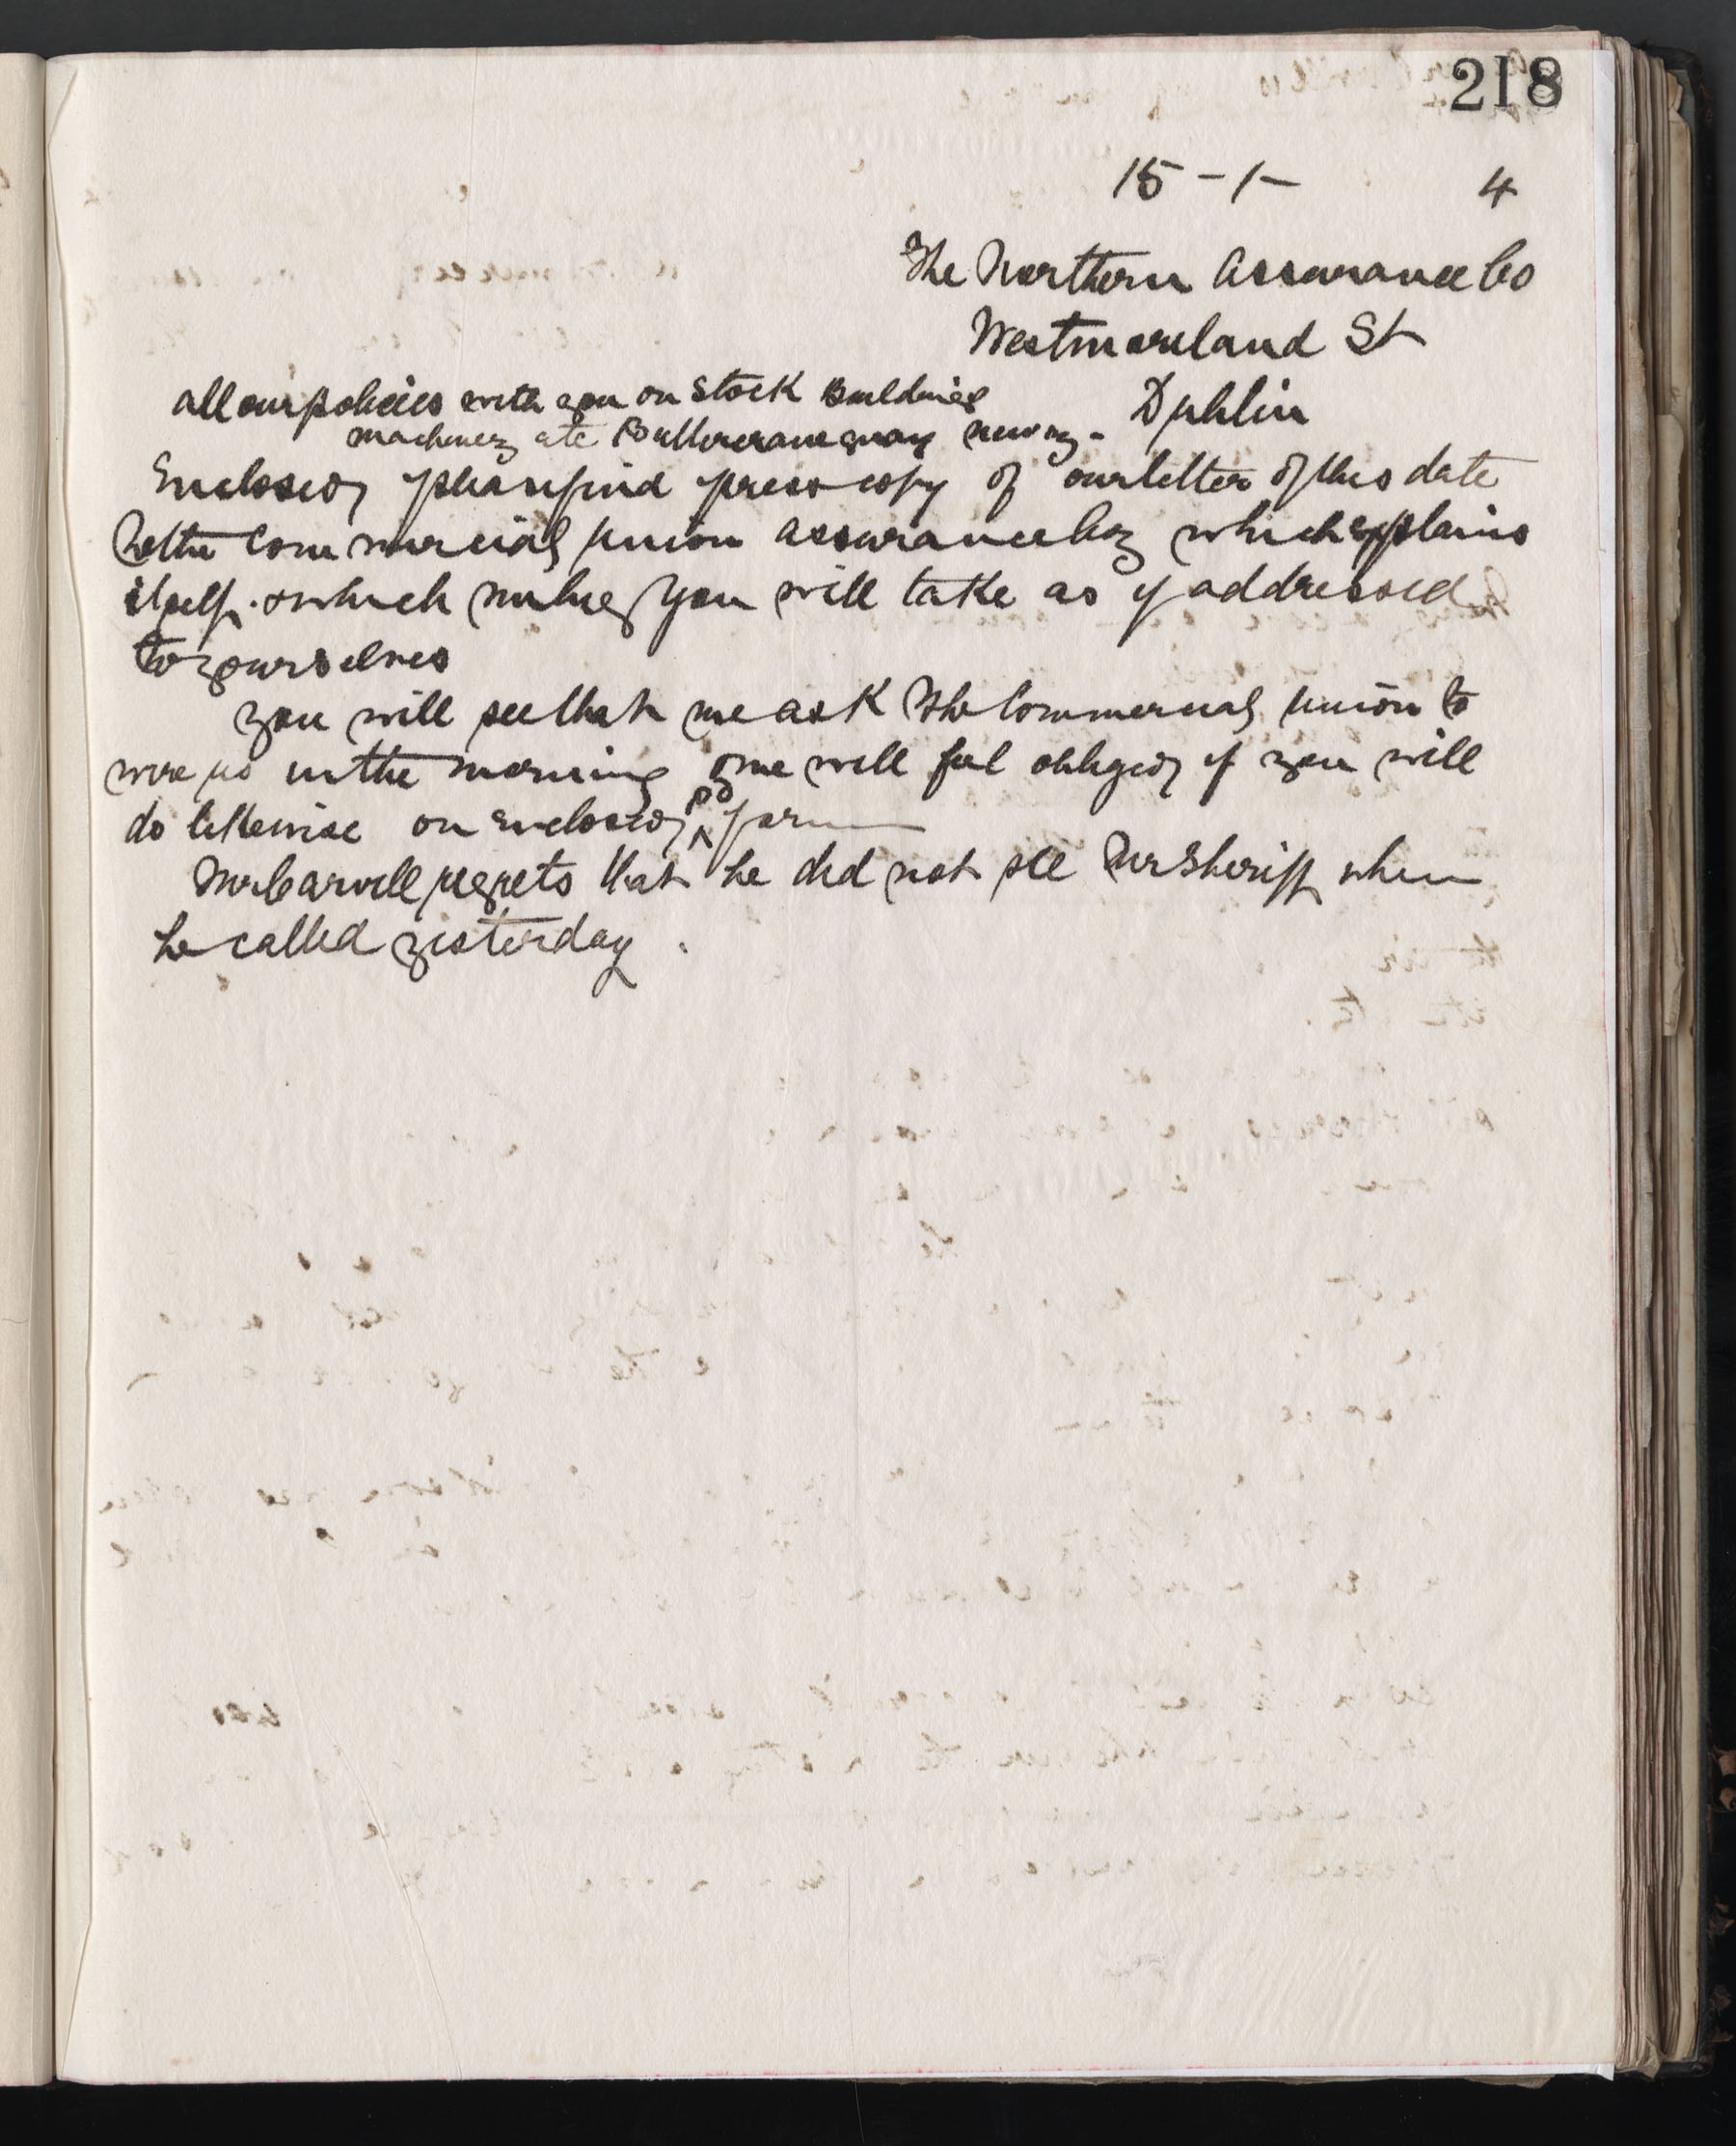 218
15 - 1 - 4
The Northern Assurance Co
Westmoreland St
Dublin
all our policies with you on Stock Buildings
machinery etc Buttercrane quay Newry -
Enclosed please find press copy of our letter of this date
to the Commercial Union Assurance Coy which explains
itself. & which you will take as if addressed
to yourselves
You will see that we ask the Commercial Union to
wire us in the morning & we will feel obliged if you will
do likewise on enclosed pd form
Mr Carvill regrets that he did not see Mr Sheriff when
he called yesterday.